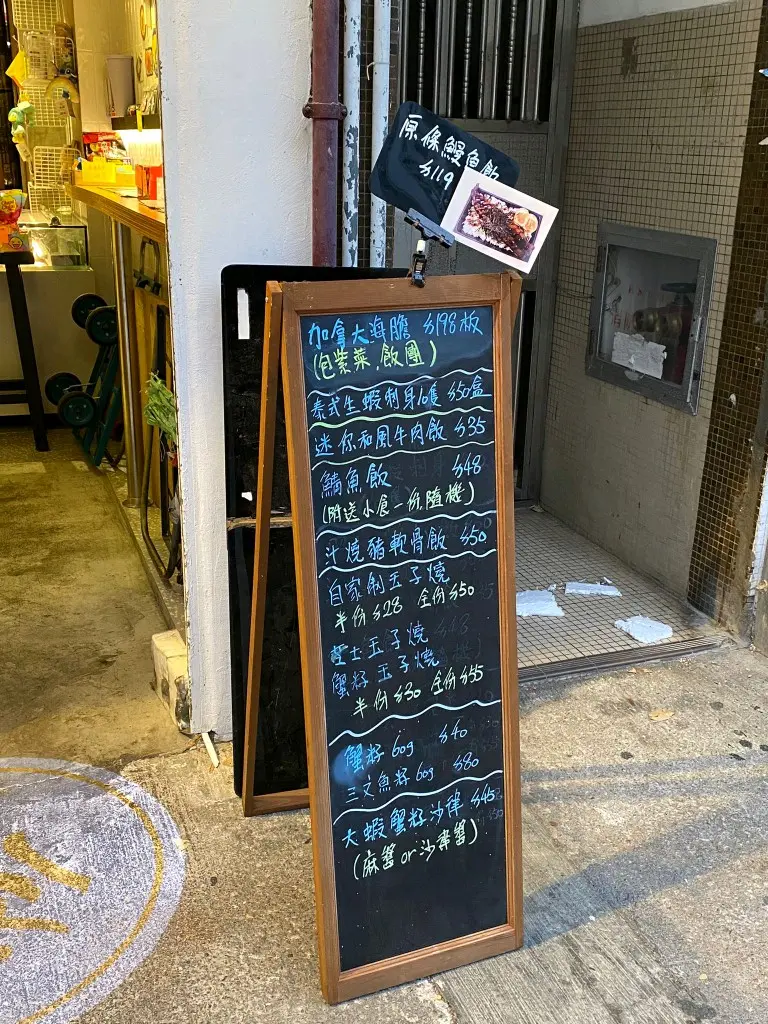 原條鰻魚飯
$119
加拿大海膽 $198板
(包紫菜.飯團)
泰式生蝦刺身10隻 $50盒
迷你和風牛肉飯 $35
鯖魚飯 $48
(附送小食一份,隨機)
汁燒豬軟骨飯 $50
自家制玉子燒
半份$28 全份$50
芝士玉子燒
蟹籽玉子燒
半份$30 全份$55
蟹籽 60g $40
三文魚籽 60g $80
大蝦蟹籽沙律 $45
(麻醬or沙律醬)